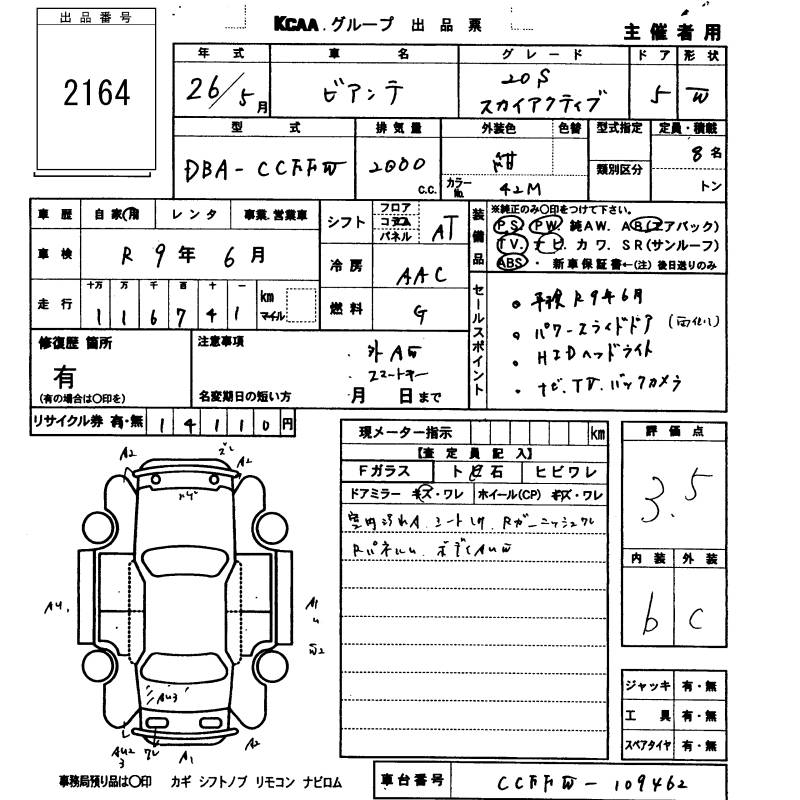 KCAA.グループ 出品票
主催者用
出品番号
2164
年式 車名 グレード ドア 形状
26/5月 ビアンテ 20S スカイアクティブ 5 W
型式 排気量 外装色 色替 型式指定 定員・積載
類別区分
DBA-CCFFW 2000 c.c. 紺 8名
カラーNo. 42M トン
車歴 自家用 レンタ 事業、営業車
シフト フロア コラム パネル AT
車検 R9年6月
冷房 AAC
走行 十万 万 千 百 十 一
116741 km マイル
燃料 G
装備品
※純正のみ○印をつけて下さい。
PS. PW. 純AW. AB(エアバック)
TV. ナビ. カワ. SR(サンルーフ)
ABS ・ 新車保証書←(注) 後日送りのみ
セールスポイント
・車検R9年6月
・パワースライドドア
・HIDヘッドライト
・ナビ.TV.バックカメラ
修復歴 箇所
有
(有の場合は○印を)
注意事項
・外AW
・スマートキー
名変期日の短い方 月 日まで
リサイクル券 有・無 14110円
現メーター指示 km
【査定員記入】
Fガラス トビ石 ヒビワレ
ドアミラー キズ・ワレ ホイール(CP) キズ・ワレ
室内汚れA.シートスレ.Rガーニッシュワレ
評価点
3.5
内装 外装
b C
ジャッキ 有・無
工具 有・無
スペアタイヤ 有・無
A2
A2
AU1
A1
W2
AU3
AU2
3
ワレ
A1
A2
事務局預り品は○印 カギ シフトノブ リモコン ナビロム
車台番号 CCFFW-109462